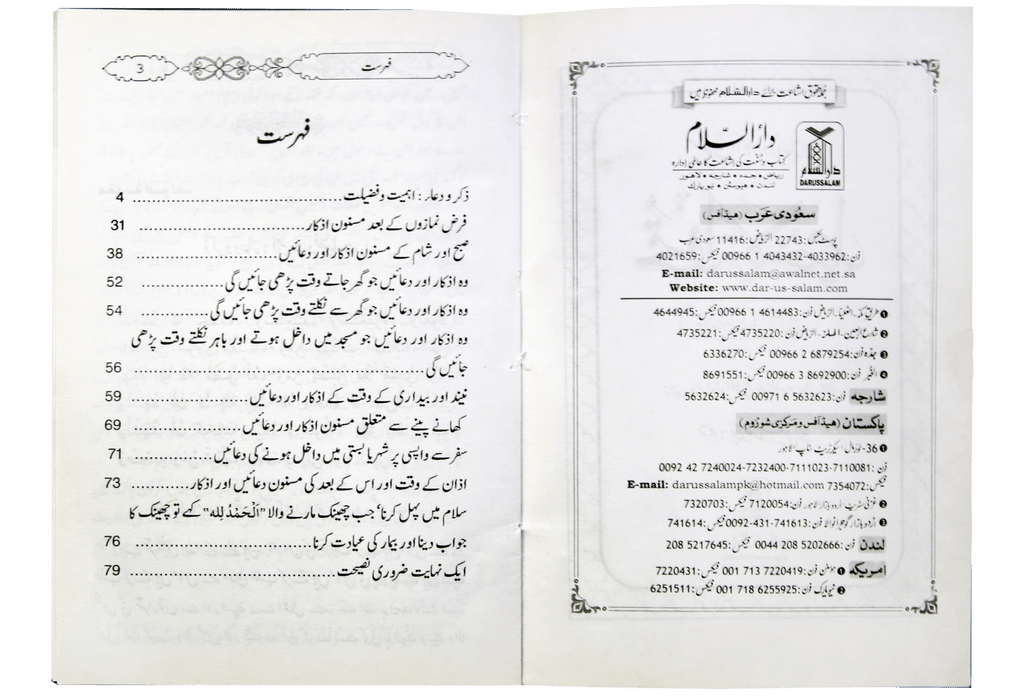 جملہ حقوق اشاعت برائے دارالسلام محفوظ ہیں
دارالسلام
کتاب و سنت کی اشاعت کا عالمی ادارہ
ریاض • جدہ • شارجہ • لاہور
لندن • ہیوسٹن • نیویارک
دارالسلام
DARUSSALAM
سعودی عرب (ہیڈ آفس)
پوسٹ بکس: 22743 الریاض: 11416 سعودی عرب
فون: 00966 1 4043432-4033962 فیکس: 4021659
E-mail: darussalam@awalnet.net.sa
Website: www.dar-us-salam.com
❶ طریق مکہ۔ العلیا۔ الریاض فون: 00966 1 4614483 فیکس: 4644945
❷ شارع اربعین۔ الملز۔ الریاض فون: 4735220 فیکس: 4735221
❸ جدہ فون: 00966 2 6879254 فیکس: 6336270
❹ الخبر فون: 00966 3 8692900 فیکس: 8691551
شارجہ فون: 00971 6 5632623 فیکس: 5632624
پاکستان (ہیڈ آفس و مرکزی شوروم)
❶ 36- لوئرمال، سیکرٹریٹ سٹاپ، لاہور
فون: 0092 42 7240024-7232400-7111023-7110081
فیکس: 7354072 E-mail: darussalampk@hotmail.com
❷ غزنی سٹریٹ، اردو بازار لاہور فون: 7120054 فیکس: 7320703
❸ اردو بازار گوجرانوالا فون: 0092-431-741613 فیکس: 741614
لندن فون: 0044 208 5202666 فیکس: 208 5217645
امریکہ ❶ ہوسٹن فون: 001 713 7220419 فیکس: 7220431
❷ نیویارک فون: 001 718 6255925 فیکس: 6251511
فہرست 3
فہرست
ذکر و دعاء: اہمیت و فضیلت .......... 4
فرض نمازوں کے بعد مسنون اذکار .......... 31
صبح اور شام کے مسنون اذکار اور دعائیں .......... 38
وہ اذکار اور دعائیں جو گھر جاتے وقت پڑھی جائیں گی .......... 52
وہ اذکار اور دعائیں جو گھر سے نکلتے وقت پڑھی جائیں گی .......... 54
وہ اذکار اور دعائیں جو مسجد میں داخل ہوتے اور باہر نکلتے وقت پڑھی
جائیں گی .......... 56
نیند اور بیداری کے وقت کے اذکار اور دعائیں .......... 59
کھانے پینے سے متعلق مسنون اذکار اور دعائیں .......... 69
سفر سے واپسی پر شہر یا بستی میں داخل ہونے کی دعائیں .......... 71
اذان کے وقت اور اس کے بعد کی مسنون دعائیں اور اذکار .......... 73
سلام میں پہل کرنا، جب چھینک مارنے والا "اَلْحَمْدُ لِلّٰه" کہے تو چھینک کا
جواب دینا اور بیمار کی عیادت کرنا .......... 76
ایک نہایت ضروری نصیحت .......... 79